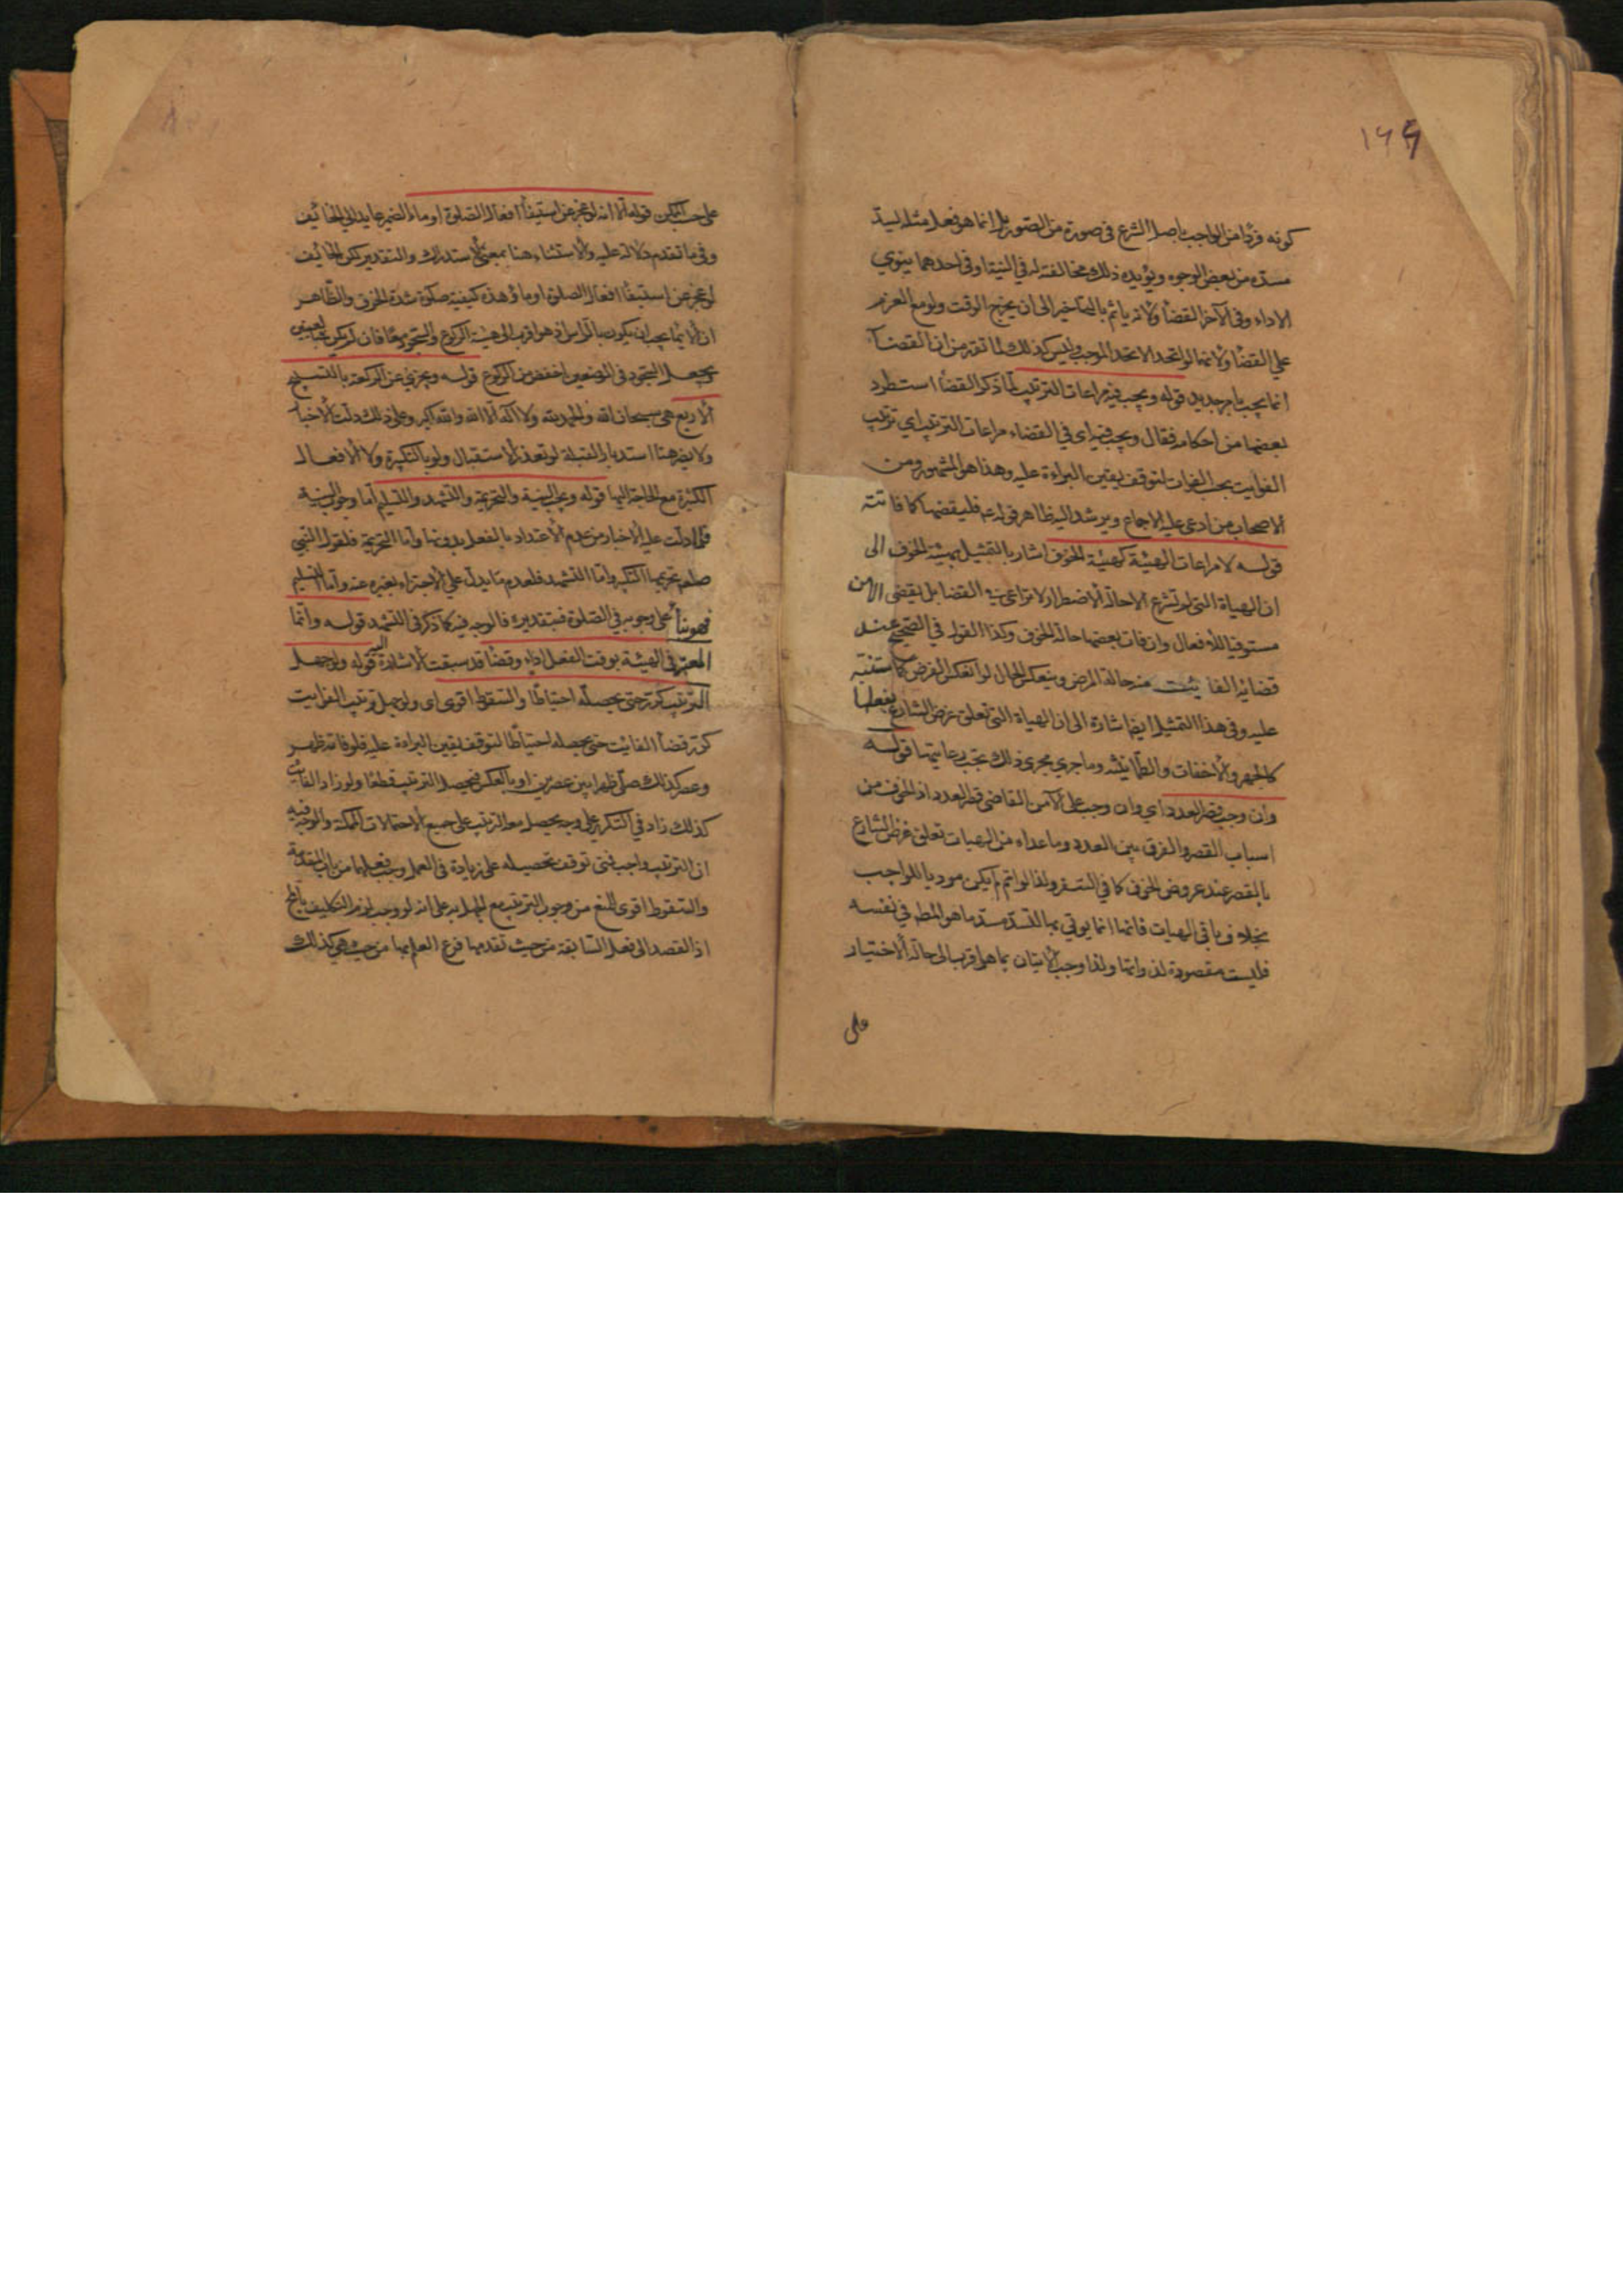 ١٦٦
كونه فردا من الواجب باصل الشرع في صورة من الصور بل انما هو فعل مثله ليسد
مسده من بعض الوجوه ويؤيده ذلك مخالفته له في النية اذ في احدهما ينوي
الاداء وفي الآخر القضا ولانه ياثم بالتاخير الى ان يخرج الوقت ولو مع العزم
على القضا ولانهما لو اتحدا لاتحد الموجب وليس كذلك لما تقرر من ان القضآ
انما يجب بامر جديد قوله ويجب فيه مراعات الترتيب لما ذكر القضا استطرد
بعضا من احكامه فقال ويجب فيه اي في القضاء مراعات الترتيب اي ترتيب
الفوايت بحسب الفوات لتوقف يقين البراءة عليه وهذا هو المشهور ومن
الاصحاب من ادعى عليه الاجماع ويرشد اليه ظاهر قوله ع فليقضها كما فاتته
قوله لا مراعات الهيئة كهيئة الخوف اشار بالتمثيل بهيئة الخوف الى
ان الهياة التي لم تشرع الا حالة الاضطرار لا تراعى في القضا بل يقضي الامن
مستوفيا للافعال وان فات بعضها حالة الخوف وكذا القول في الصحيح عند
قضائه الفايت منه حالة المرض وينعكس الحال لو انعكس الفرض كما ستنبه
عليه وفي هذا التمثيل ايضا اشارة الى ان الهياة التي تعلق غرض الشارع بفعلها
كالجهر والاخفات والطمانينة وما جرى مجرى ذلك تجب رعايتها قوله
وان وجب قصر العدد اي وان وجب على الآمن القاضي قصر العدد اذ الخوف من
اسباب القصر والفرق بين العدد وما عداه من الهيات تعلق غرض الشارع
بالقصر عند عروض الخوف كما في السفر ولذا لو اتم لم يكن موديا للواجب
بخلاف باقي الهيات فانها انما يوتي بها لتسد مسد ما هو المطم في نفسه
فليست مقصودة لذواتها ولذا وجب الاتيان بما هو اقرب الى حالة الاختيار
على
على حسب الممكن قوله الا انه لو عجز عن استيفآ افعال الصلوة اوما الضمير عايد الى الخائف
وفي ما تقدم دلالة عليه والاستثناء هنا بمعنى الاستدراك والتقدير لكن الخائف
لو عجز عن استيفآ افعال الصلوة اوما وهذه كيفية صلوة شدة الخوف والظاهر
ان الايما يجب ان يكون بالراس اذ هو اقرب الى هيئة الركوع والسجود معا فان لم يكن فبالعينين
ويجعل السجود في الموضعين اخفض من الركوع قوله ويجزي عن الركعة بالتسبيح
الاربع هي سبحان الله والحمد لله ولا اله الا الله والله اكبر وعلى ذلك دلت الاخبار
ولا يضر هنا استدبار القبلة لو تعذر الاستقبال ولو بالتكبيرة ولا الافعال
الكثيرة مع الحاجة اليها قوله ويجب النية والتحريمة والتشهد والتسليم اما وجوب النية
فلما دلت عليه الاخبار من عدم الاعتداد بالفعل بدونها واما التحريمة فلقول النبي
صلعم تحريمها التكبير واما التشهد فلعدم ما يدل على الاجتزاء بغيره عنه واما التسليم
فهو بنآ على وجوبه في الصلوة فبتقديره فالوجه فيه كما ذكر في التشهد قوله وانما
المعتبر في الهيئة بوقت الفعل اداء وقضآ قد سبقت الاشارة اليه قوله ولو جهل
الترتيب كرر حتى يحصله احتياطا والسقوط اقوى اى ولو جهل ترتيب الفوايت
كرر قضآ الفائت حتى يحصله احتياطا لتوقف يقين البراءة عليه فلو فاته ظهر
وعصر كذلك صلى ظهرا بين عصرين او بالعكس فيحصل الترتيب قطعا ولو زاد الفائت
كذلك زاد في التكرير على وجه يحصل معه الترتيب على جميع الاحتمالات الممكنة والوجه فيه
ان الترتيب واجب فمتى توقف تحصيله على زيادة في العمل وجب فعلها من باب المقدمة
والسقوط اقوى للمنع من وجوب الترتيب مع الجهل به على انه لو وجب لزم التكليف بالمح
اذ القصد الى فعل السابقة من حيث تقدمها فرع العلم بها من حيث هي كذلك